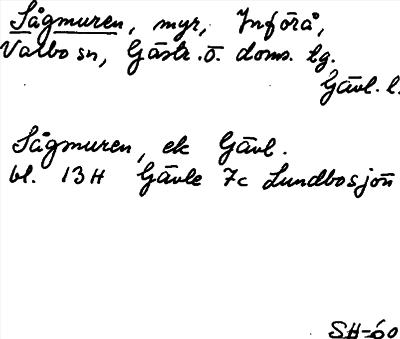 Sågmuren, myr, Införå,
Valbo sn, Gästr.ö. doms. tg.
Gävl. l.
Sågmuren, ek Gävl.
bl. 13H Gävle 7c Lundbosjön
SH-60